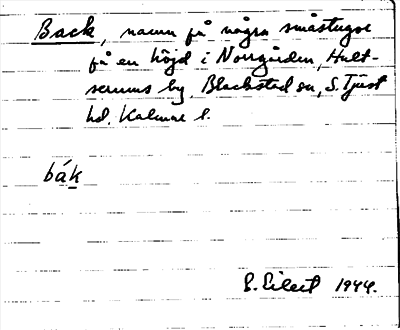 Back, namn på några småstugor
på en höjd i Norrgården, Hult-
serums by, Blackstad sn, S. Tjust
hd. Kalmar l.
bák
S. 1944.